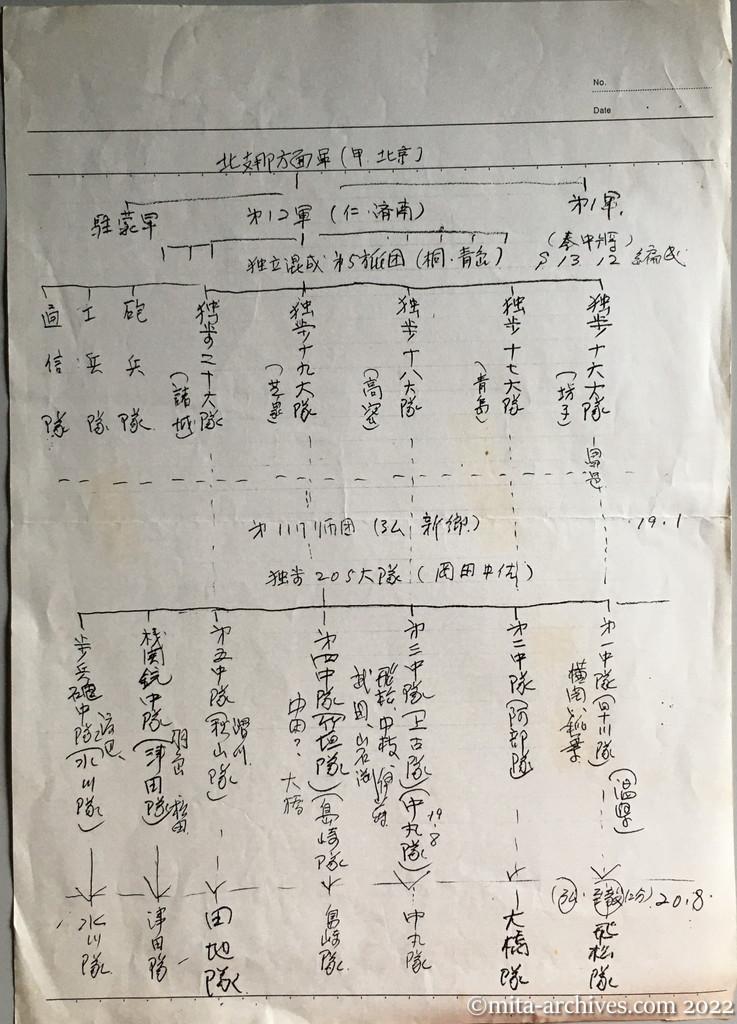 No.
Date
北支那方面軍(甲・北京)
駐蒙軍
第12軍(仁・済南)
第1軍
独立混成第5旅団(桐・青島)
(秦中将)
S 13. 12 編成
独歩十六大隊
(坊子)
独歩十七大隊
(青島)
独歩十八大隊
(高密)
独歩十九大隊
独歩二十大隊
(諸城)
砲兵隊
工兵隊
通信隊
第117师団(弘 新郷)
19.1
独歩205大隊(岡田中佐)
第一中隊
(温県)
第二中隊(阿部隊)
第三中隊
(中丸隊)
19.8
第四中隊
(島崎隊)
中田?
大橋
第五中隊(秋山隊)
滑川
機関銃中隊(津田隊)
松田
歩兵砲中隊(氷川隊)
渡辺
20.8.
大橋隊
中丸隊
島崎隊
田地隊
津田隊
氷川隊
©mita-archives.com 2022